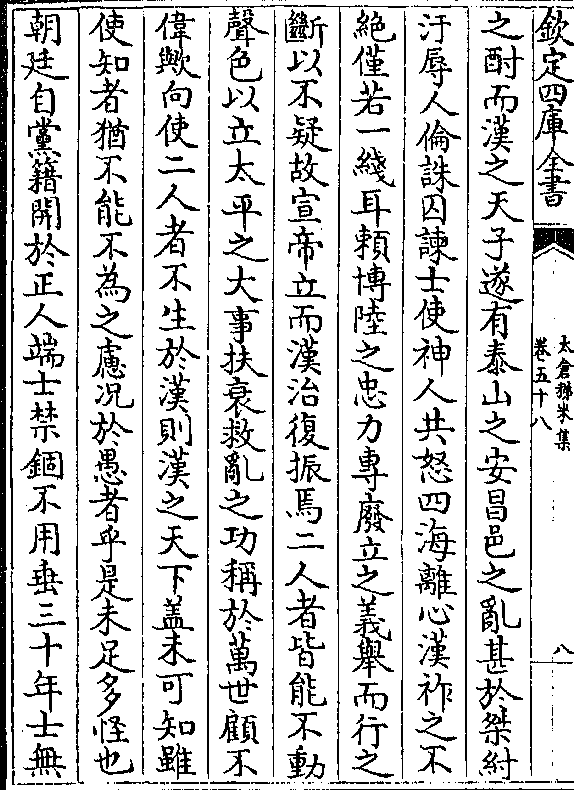 欽定四庫全書
太倉稊米集
卷五十八
八
之酎而漢之天子遂有泰山之安昌邑之亂甚於桀紂
汙辱人倫誅囚諫士使神人共怒四海離心漢祚之不
絶僅若一綫耳賴博陸之忠力專廢立之義舉而行之
斷以不疑故宣帝立而漢治復振焉二人者皆能不動
聲色以立太平之大事扶衰救亂之功稱於萬世顧不
偉歟向使二人者不生於漢則漢之天下盖未可知雖
使知者猶不能不為之慮況於愚者乎是未足多怪也
朝廷自黨籍開於正人端士禁錮不用垂三十年士無